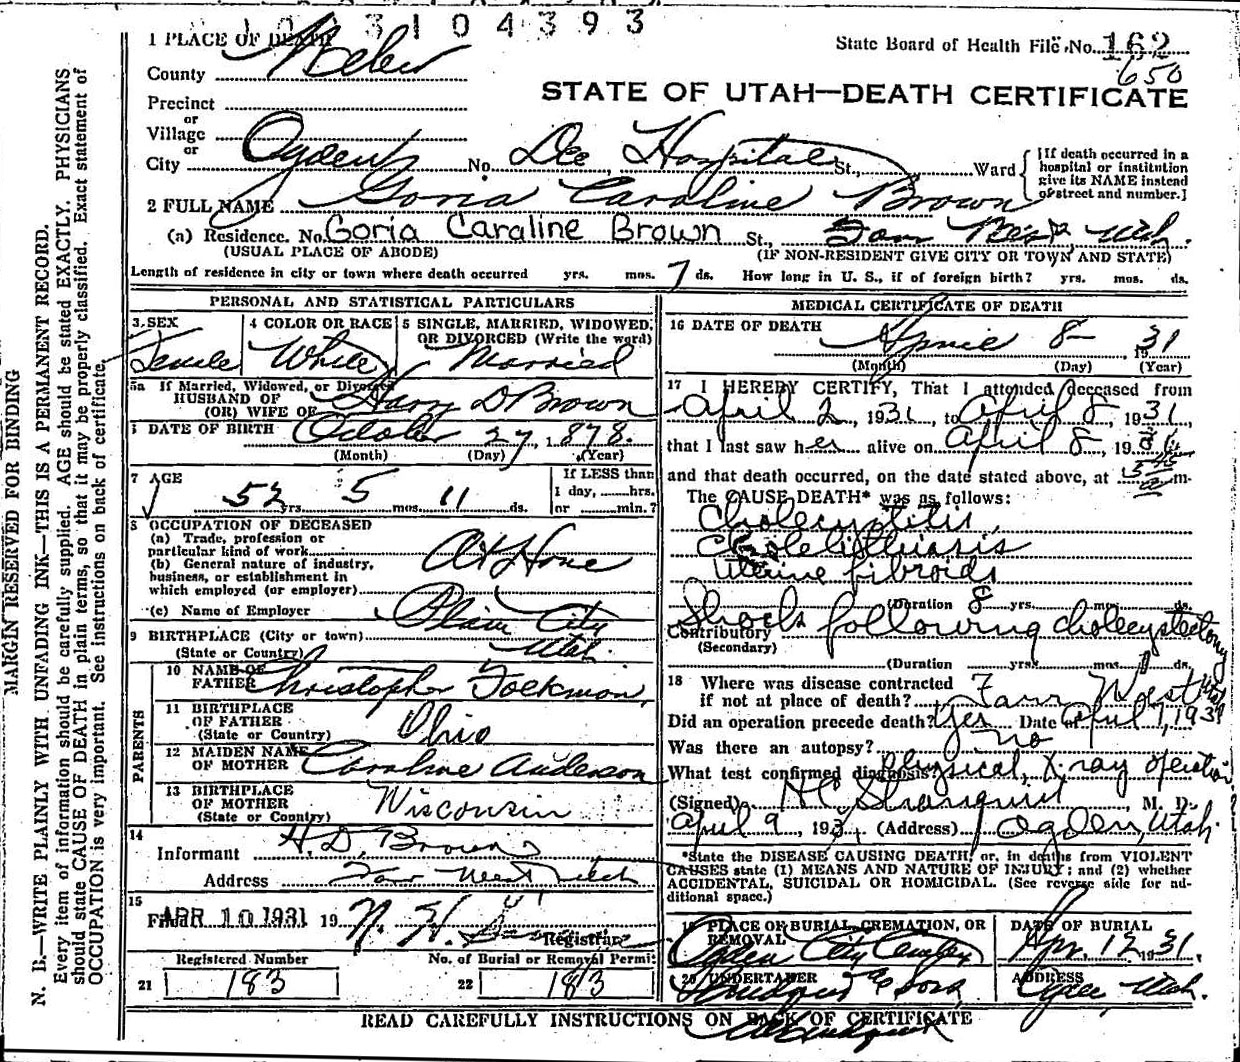 3104393
1 PLACE OF DEATH
State Board of Health File No. 162
650
County Weber
STATE OF UTAH—DEATH CERTIFICATE
Precinct
or
Village
or
City Ogden No. Dee Hospital St., Ward
[If death occurred in a hospital or institution give its NAME instead of street and number.]
2 FULL NAME Goria Caroline Brown
(a) Residence. No. Goria Caraline Brown St., Farr West, Utah.
(USUAL PLACE OF ABODE) (IF NON-RESIDENT GIVE CITY OR TOWN AND STATE)
Length of residence in city or town where death occurred yrs. mos. 7 ds. How long in U. S., if of foreign birth? yrs. mos. ds.
PERSONAL AND STATISTICAL PARTICULARS
3 SEX
Female
4 COLOR OR RACE
White
5 SINGLE, MARRIED, WIDOWED, OR DIVORCED (Write the word)
Married
5a If Married, Widowed, or Divorced
HUSBAND OF
(OR) WIFE OF Harry D Brown
DATE OF BIRTH October 27, 1878.
(Month) (Day) (Year)
7 AGE
52 yrs. 5 mos. 11 ds.
If LESS than
1 day, hrs.
or min.?
8 OCCUPATION OF DECEASED
(a) Trade, profession or
particular kind of work
At Home
(b) General nature of industry,
business, or establishment in
which employed (or employer)
(c) Name of Employer
9 BIRTHPLACE (City or town) Plain City
(State or Country) Utah.
PARENTS
10 NAME OF
FATHER Christopher Folkman
11 BIRTHPLACE
OF FATHER
(State or Country) Ohio
12 MAIDEN NAME
OF MOTHER Caroline Anderson
13 BIRTHPLACE
OF MOTHER
(State or Country) Wisconsin
14
Informant H. D. Brown
Address Farr West Utah
15
Filed APR 10 1931 19
Registrar
Registered Number
21 183
No. of Burial or Removal Permit
22 183
MEDICAL CERTIFICATE OF DEATH
16 DATE OF DEATH April 8- 1931
(Month) (Day) (Year)
17 I HEREBY CERTIFY, That I attended deceased from
April 2, 1931, to April 8, 1931,
that I last saw her alive on April 8, 1931,
and that death occurred, on the date stated above, at 5 45 a m.
The CAUSE DEATH* was as follows:
Cholecystitis,
Cholelithiasis
Uterine fibroids
(Duration 8 yrs. mos. ds.
Contributory Shock following cholecystectomy
(Secondary)
(Duration yrs. mos. 1 ds.
18 Where was disease contracted
if not at place of death? Farr West Utah
Did an operation precede death? Yes Date of April 7, 1931
Was there an autopsy? no
What test confirmed diagnosis? physical, X-ray operation
(Signed) M. D.
April 9, 1931, (Address) Ogden, Utah.
*State the DISEASE CAUSING DEATH, or, in deaths from VIOLENT
CAUSES state (1) MEANS AND NATURE OF INJURY; and (2) whether
ACCIDENTAL, SUICIDAL OR HOMICIDAL. (See reverse side for additional space.)
19 PLACE OF BURIAL, CREMATION, OR
REMOVAL
Ogden City Cemetery
DATE OF BURIAL
Apr. 12 1931,
20 UNDERTAKER
Lindquist & Sons
ADDRESS
Ogden, Utah.
READ CAREFULLY INSTRUCTIONS ON BACK OF CERTIFICATE
MARGIN RESERVED FOR BINDING
N. B.—WRITE PLAINLY WITH UNFADING INK—THIS IS A PERMANENT RECORD.
Every item of information should be carefully supplied. AGE should be stated EXACTLY. PHYSICIANS
should state CAUSE OF DEATH in plain terms, so that it may be properly classified. Exact statement of
OCCUPATION is very important. See instructions on back of certificate.